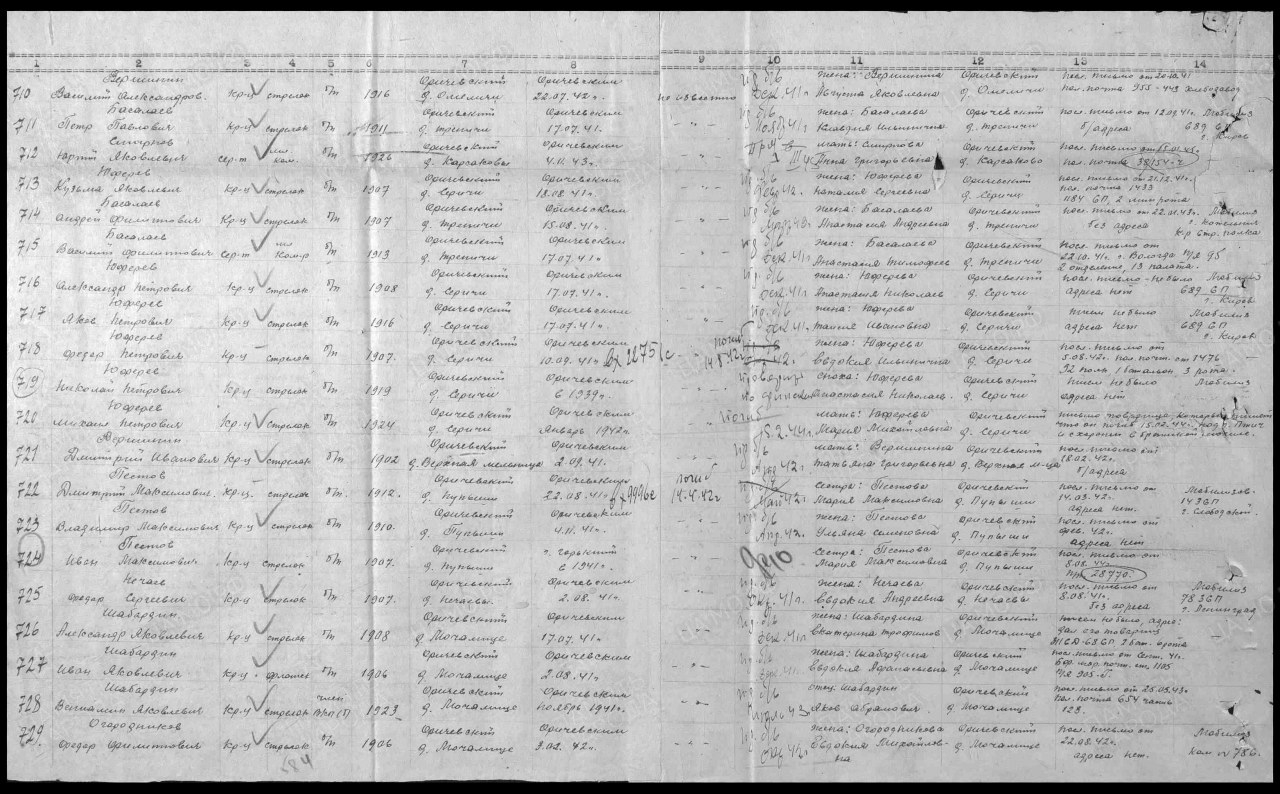 1 2 3 4 5 6 7 8 9 10 11 12 13 14
Вершинин Оричевский Оричевским пр. б/в жена: Вершинина Оричевский посл. письмо от 20.10.41
710 Василий Александров. кр-ц стрелок б/п 1916 д. Омеличи 22.07.42г. не известно дек. 41г. Августа Яковлевна д. Омеличи пол. почта 955-449 хлебозавод
Басалаев Оричевский Оричевским пр. б/в жена: Басалаева Оричевский посл. письмо от 12.09.41г. Мобилиз
711 Петр Павлович кр-ц стрелок б/п 1911 д. Трепичи 17.07.41г. -"- Нояб. 41г. Клавдия Ильинична д. Трепичи б/адреса 689 ВП
г. Киров
Смирнов мл. Оричевский Оричевским мать: Смирнова Оричевский посл. письмо от
712 Юрий Яковлевич сер-т ком. б/п 1926 д. Карсаково 4.11.43г. -"- Анна Григорьевна д. Карсаково пол. почта 38154-ч
Юферев Оричевский Оричевским пр. б/в жена: Юферева Оричевский посл. письмо от 21.12.41г.
713 Кузьма Яковлевич кр-ц стрелок б/п 1907 д. Серичи 18.08.41г. -"- Февр 42г. Наталия Сергеевна д. Серичи пол. почта 1433
1184 СП, 2 минрота
Басалаев Оричевский Оричевским пр. б/в жена: Басалаева Оричевский посл. письмо от 22.01.43г. Мобилиз
714 Андрей Филиппович кр-ц стрелок б/п 1907 д. Трепичи 15.08.41г. -"- Анастасия Андреевна д. Трепичи без адреса г. Котельнич
Басалаев пом Оричевский Оричевским пр. б/в жена: Басалаева Оричевский посл. письмо от
715 Василий Филиппович сер-т ком-р б/п 1913 д. Трепичи 17.07.41г -"- дек. 41г Анастасия Тимофеев д. Трепичи 22.10.41г. г. Вологда п/я 95
2 отделение, 13 палата.
Юферев Оричевский Оричевским пр. б/в жена: Юферева Оричевский посл. письмо-не было Мобилиз
716 Александр Петрович кр-ц стрелок б/п 1908 д. Серичи 17.07.41г. -"- дек. 41г Анастасия Николаев д. Серичи адреса нет 689 СП
г. Киров
Юферев Оричевский Оричевским пр. б/в жена: Юферева Оричевский писем не было Мобилиз
717 Яков Петрович кр-ц стрелок б/п 1916 д. Серичи 17.07.41г. -"- дек. 41г. Таисия Ивановна д. Серичи адреса нет 689 СП
г. Киров
Юферев Оричевский Оричевским погиб жена: Юферева Оричевский посл. письмо от
718 Федор Петрович кр-ц стрелок б/п 1907. д. Серичи 10.09.41г. вх 2275/с 14.8.42г. Евдокия Ильинична д. Серичи 5.08.42г. пол. почт. ст 1476
52 полк 1 батальон, 3 рота.
Юферев Оричевский Оричевским сноха: Юферева Оричевский писем не было Мобилиз
719 Николай Петрович кр-ц стрелок б/п 1919 д. Серичи в 1939г. Анастасия Николаев. д. Серичи адреса нет
Юферев Оричевский Оричевским погиб мать: Юферева Оричевский письмо товарища, который пишет
720 Михаил Петрович кр-ц стрелок б/п 1924 д. Серичи Январь 1942г. 15.2.44г. Мария Михайловна д. Серичи что он погиб 15.02.44г.
и схоронен в братской могиле.
Вершинин Оричевский Оричевским пр. б/в мать: Вершинина Оричевский посл. письмо от
721 Дмитрий Иванович кр-ц стрелок б/п 1902 д. Верхняя мельница 2.09.41. -"- Апр. 42г. Татьяна Григорьевна д. Верхняя м-ца 18.02.42г.
б/адреса
Пестов Оричевский Оричевским погиб сестра: Пестова Оричевский посл. письмо от Мобилизов.
722 Дмитрий Максимович кр-ц стрелок б/п. 1912. д. Пупыши 22.08.41г. вх 9996с 14.4.42г Май 42г. Мария Максимовна д. Пупыши 14.03.42г. 143 СП
адреса нет. г. Слободской.
Пестов Оричевский Оричевским пр. б/в жена: Пестова Оричевский посл. письмо от
723 Владимир Максимович кр-ц стрелок б/п 1910. д. Пупыши 4.11.41г. -"- Апр. 42г. Ульяна Семеновна д. Пупыши фев. 42г.
адреса нет
Пестов Оричевский г. Горький сестра: Пестова Оричевский посл. письмо от
724 Иван Максимович кр-ц стрелок б/п 1907. д. Пупыши в 1941г. -"- Мария Максимовна д. Пупыши 8.08.44г.
28770.
Нечаев Оричевский Оричевским пр. б/в жена: Нечаева Оричевский посл. письмо от Мобилиз
725 Федор Сергеевич кр-ц стрелок б/п 1907. д. Нечаевы 2.08.41г. -"- Евдокия Андреевна д. Нечаева 8.08.41г. 783 СП
без адреса г. Ленинград
Шабардин Оричевский Оричевским пр. б/в жена: Шабардина Оричевский писем не было, адрес
726 Александр Яковлевич кр-ц стрелок б/п 1908 д. Мочалище 17.07.41г -"- дек. 41г Екатерина Трофимов д. Мочалище дал его товарищ
Шабардин Оричевский Оричевским пр. б/в жена: Шабардина Оричевский посл. письмо от сент. 41г.
727 Иван Яковлевич кр-ц 1906 д. Мочалище 2.08.41г. -"- Евдокия Афанасьевна д. Мочалище
п/я 905-б.
Шабардин член Оричевский Оричевским пр. б/в отец: Шабардин Оричевский посл. письмо от 25.03.43г.
728 Вениамин Яковлевич кр-ц стрелок ВКП(б) 1923 д. Мочалище ноябрь 1941г. -"- Яков Абрамович д. Мочалище пол. почта 654 часть
128.
Огородников Оричевский Оричевским пр. б/в жена: Огородникова Оричевский посл. письмо от Мобилиз
729. Федор Филиппович кр-ц стрелок б/п 1906 д. Мочалище 3.02.42г. -"- Евдокия Михайлов- д. Мочалище 22.08.42г.
на адреса нет. ком. № 786.